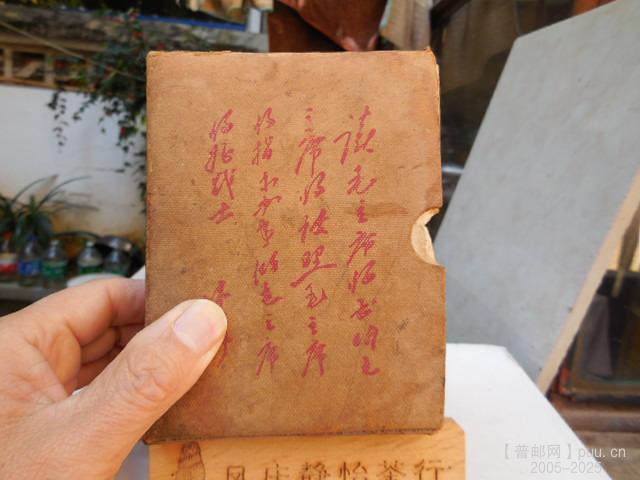 读毛主席的书听毛
主席的话照毛主席
的指示办事做毛主席
的好战士
凤庆静怡茶行
【普邮网】puu.cn
2005-2025